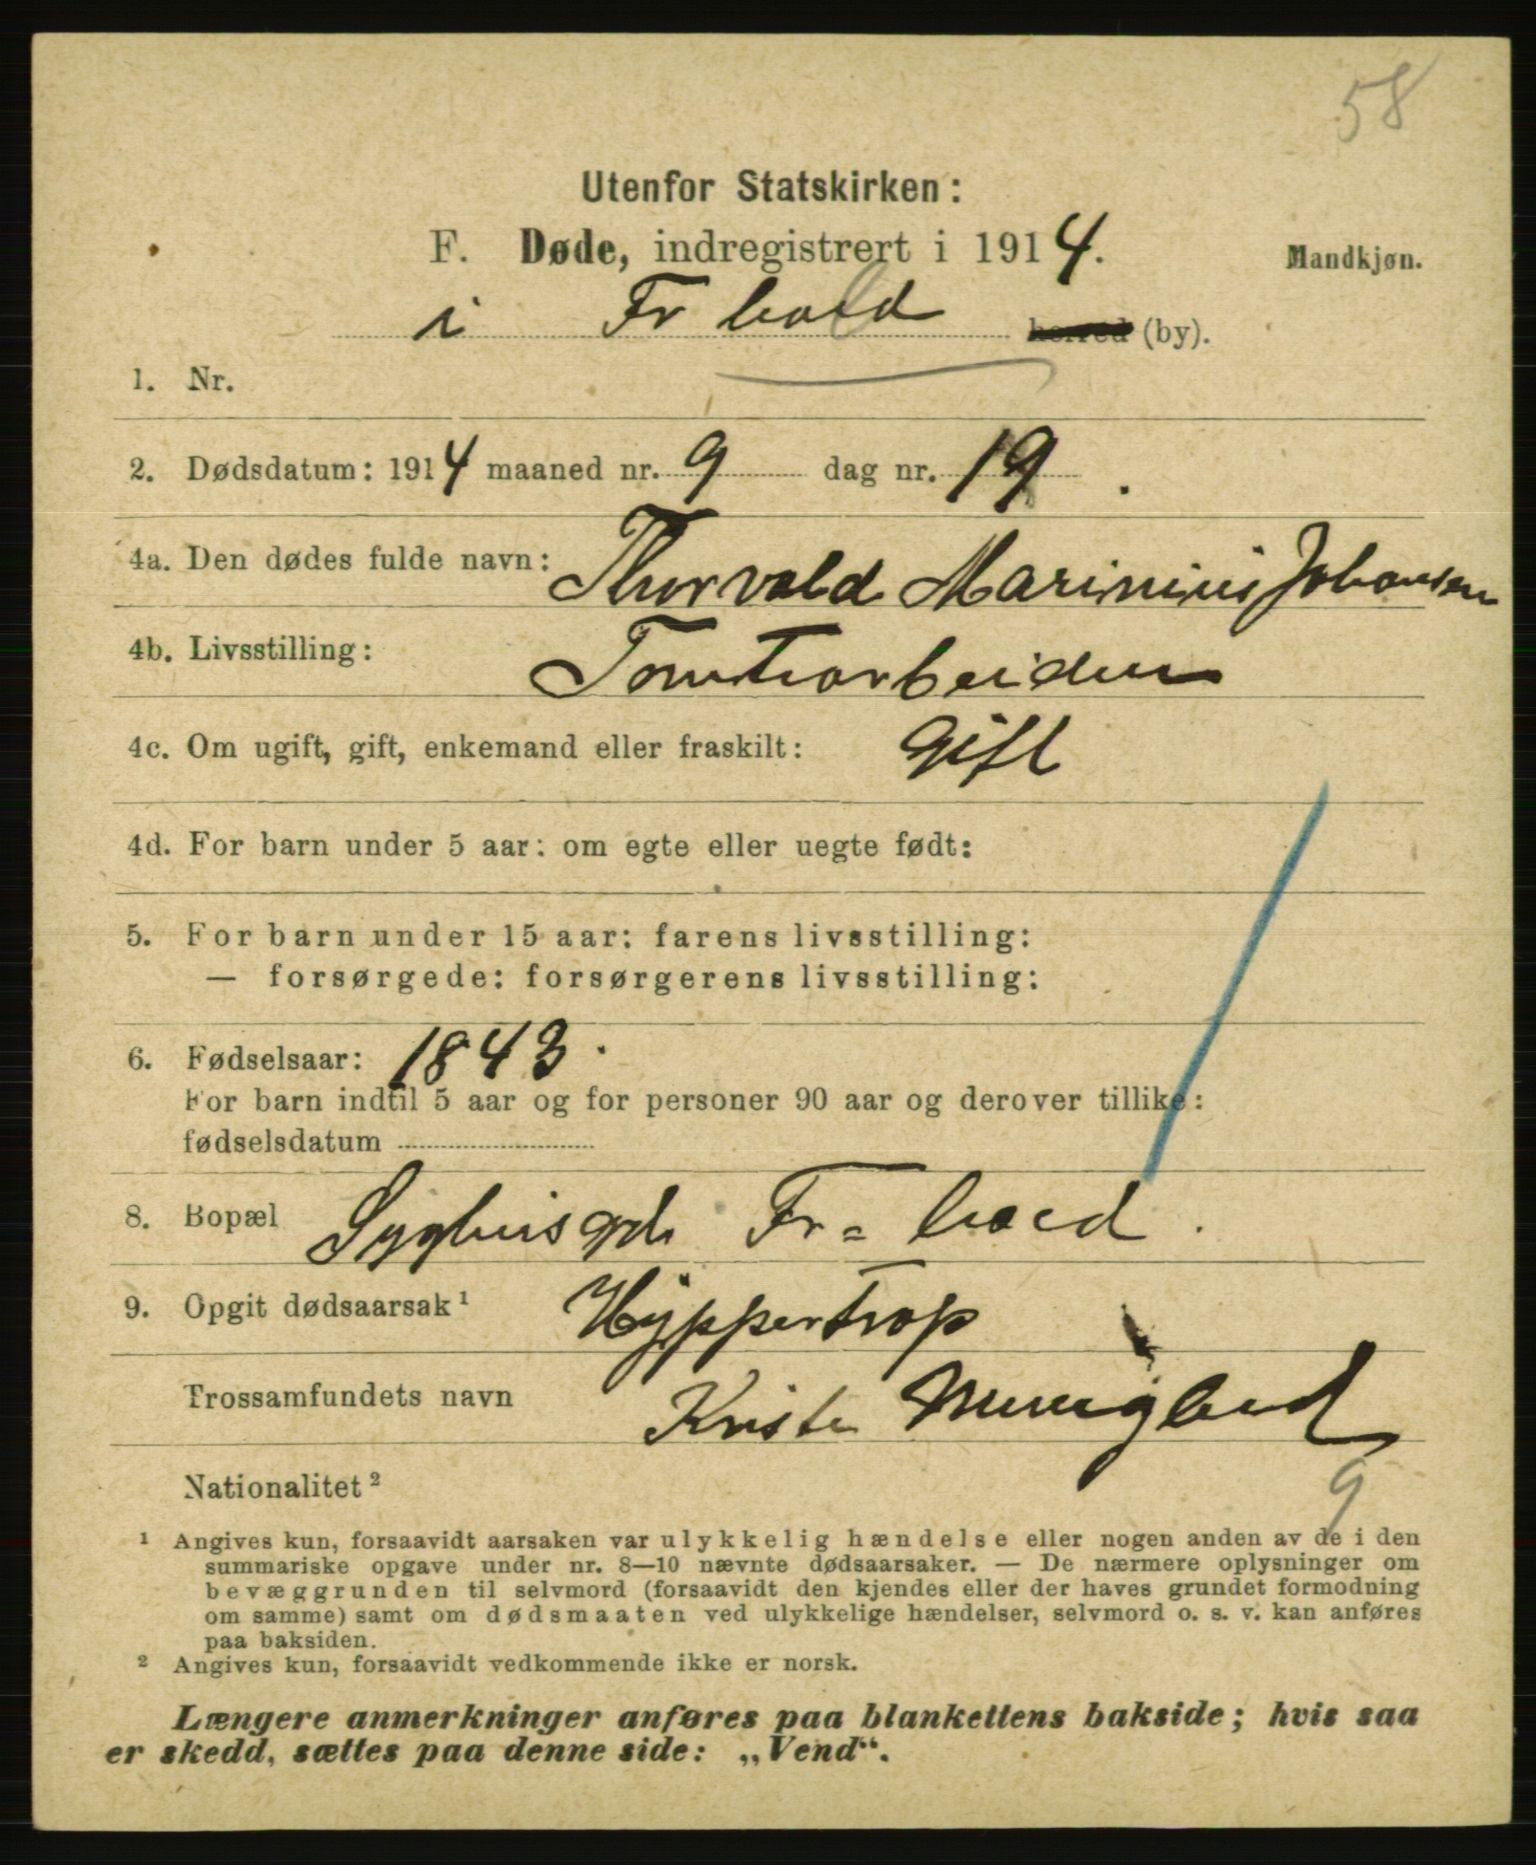 58
Utenfor Statskirken:
F. Døde, indregistrert i 1914.
Mandkjøn.
i Fr hald herred (by).
1. Nr.
2. Dødsdatum: 1914 maaned nr. 9 dag nr. 19.
4a. Den dødes fulde navn: Thorvald Marinius Johansen
4b. Livsstilling: Tomtearbeider
4c. Om ugift, gift, enkemand eller fraskilt: Gift
4d. For barn under 5 aar: om egte eller uegte født:
5. For barn under 15 aar: farens livsstilling:
— forsørgede: forsørgerens livsstilling:
6. Fødselsaar: 1843.
For barn indtil 5 aar og for personer 90 aar og derover tillike:
fødselsdatum
8. Bopæl Syghusgd. Fr=hald.
9. Opgit dødsaarsak¹ Hyppertrop
Trossamfundets navn Kriste Menighed
Nationalitet²
9
¹ Angives kun, forsaavidt aarsaken var ulykkelig hændelse eller nogen anden av de i den
summariske opgave under nr. 8—10 nævnte dødsaarsaker. — De nærmere oplysninger om
bevæggrunden til selvmord (forsaavidt den kjendes eller der haves grundet formodning
om samme) samt om dødsmaaten ved ulykkelige hændelser, selvmord o. s. v. kan anføres
paa baksiden.
² Angives kun, forsaavidt vedkommende ikke er norsk.
Længere anmerkninger anføres paa blankettens bakside; hvis saa
er skedd, sættes paa denne side: „Vend“.